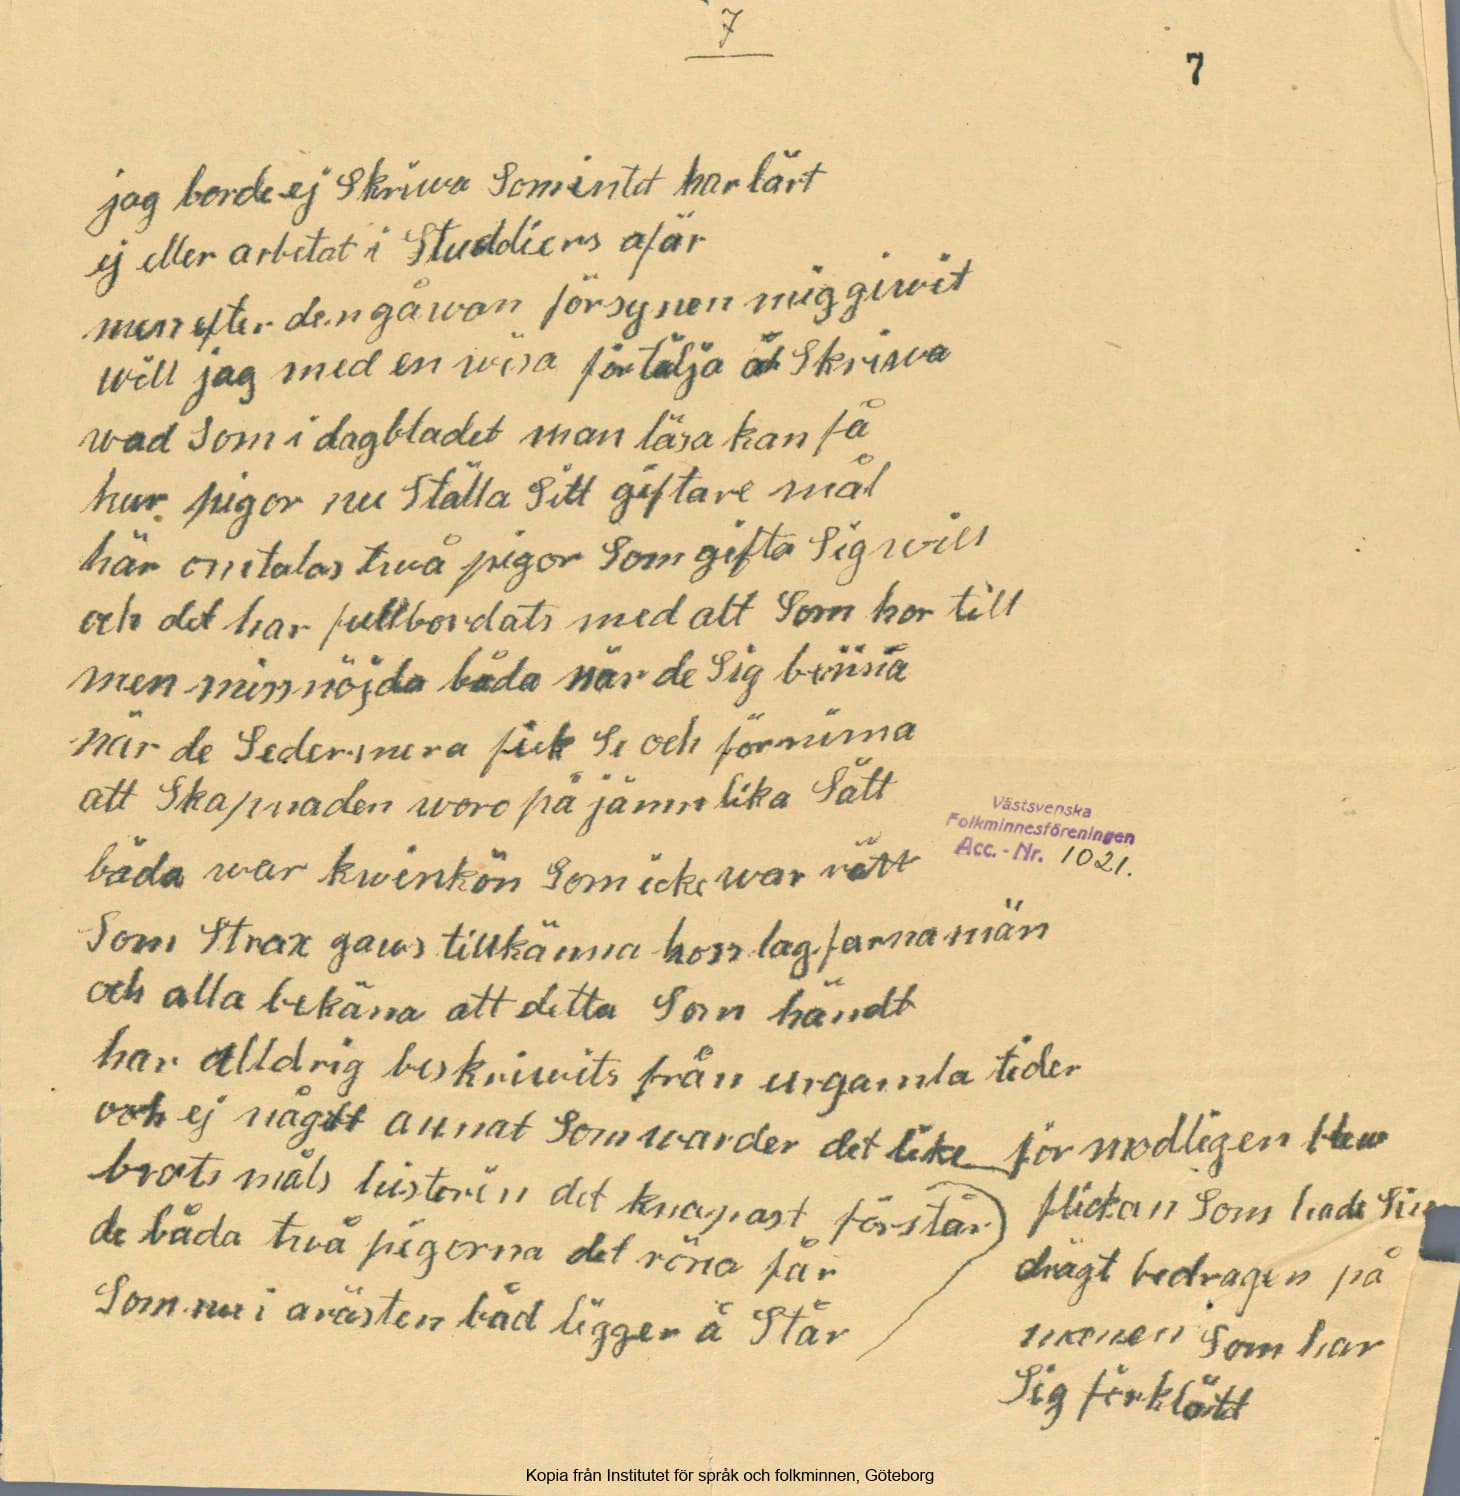 7
7
jag borde ej Skriwa Som intet har lärt
ej eller arbetat i Studdiers afär
men efter den gåwan försynen mig giwit
will jag med en wisa förtälja åt Skriwa
wad Som i dagbladet man läsa kan få
hur pigor nu Ställa Sitt giftare mål
här omtalas twå pigor Som gifta Sig will
och det har fullbordats med alt Som hor till
men missnöjda båda när de Sig
när de Sedermera fick Se och förnima
att Skapnaden woro på jämnlika Sätt
båda war kwinkön Som icke war rätt
Som Strax gaws tillkänna hoss lagfarna män
och alla bekäna att detta Som händt
har alldrig beskriwits från urgamla tider
och ej någott annat Som warder det like
brots måls historin det knapast förstår
de båda twå pigorna det röna får
Som nu i arästen båd ligger å Står
förmodligen blew
flickan Som hade Sin
drägt bedragen på
manen Som har
Sig förklädd
Västsvenska
Folkminnesföreningen
Acc.-Nr. 1021.
Kopia från Institutet för språk och folkminnen, Göteborg